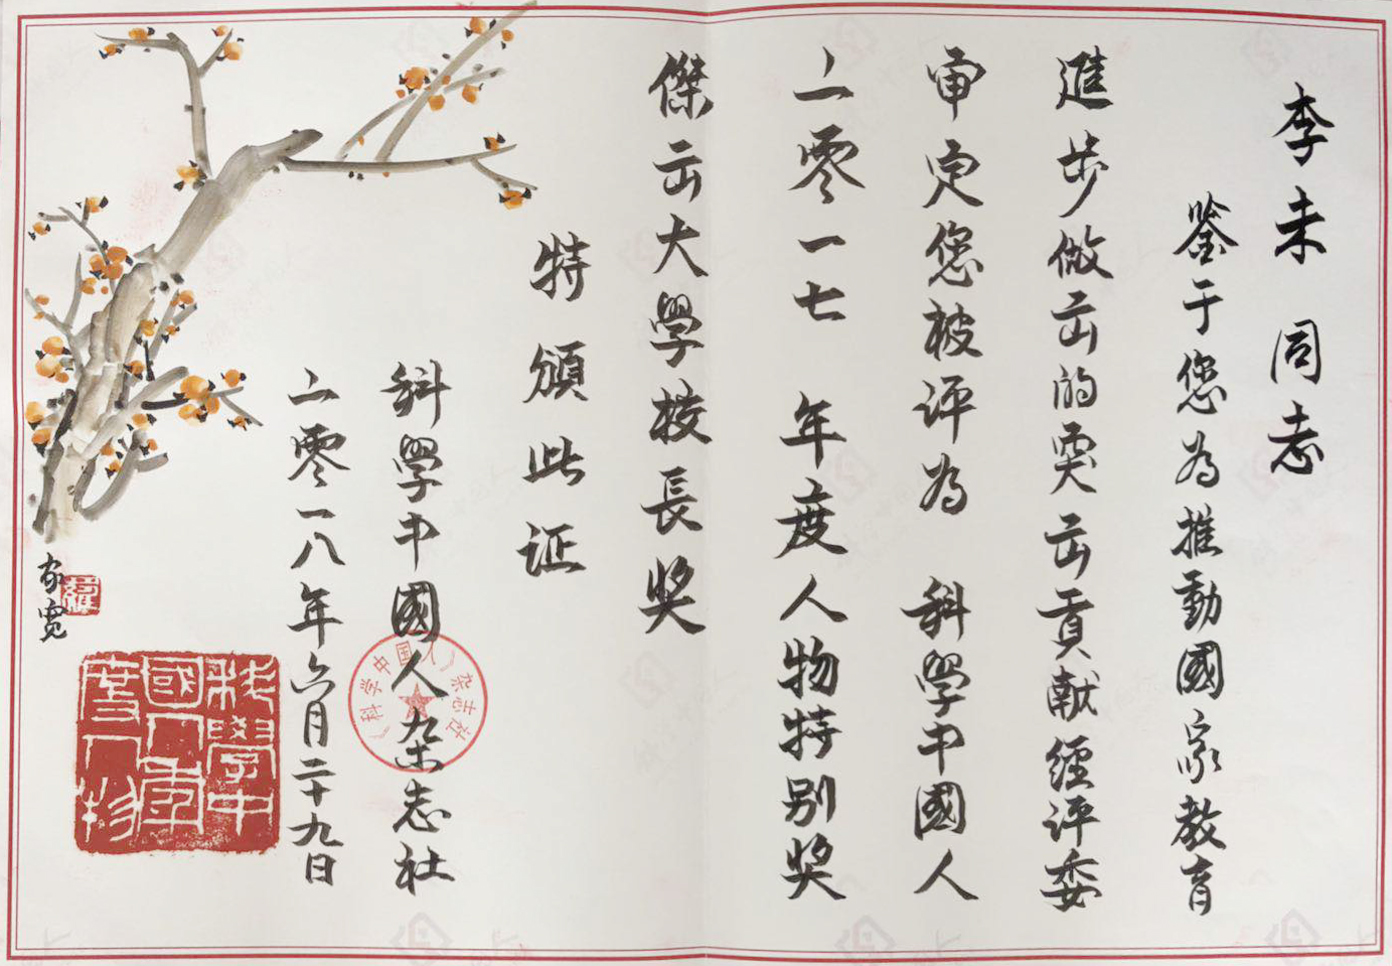 李未同志
鉴于您為推動國家教育
進步做出的突出貢献經评委
审定您被评為 科學中國人
二零一七 年度人物特别奖
傑出大學校長奖
特頒此证
科學中國人杂志社
二零一八年六月二十九日
家寛
科學中
國人年
度人物
科学中国人杂志社